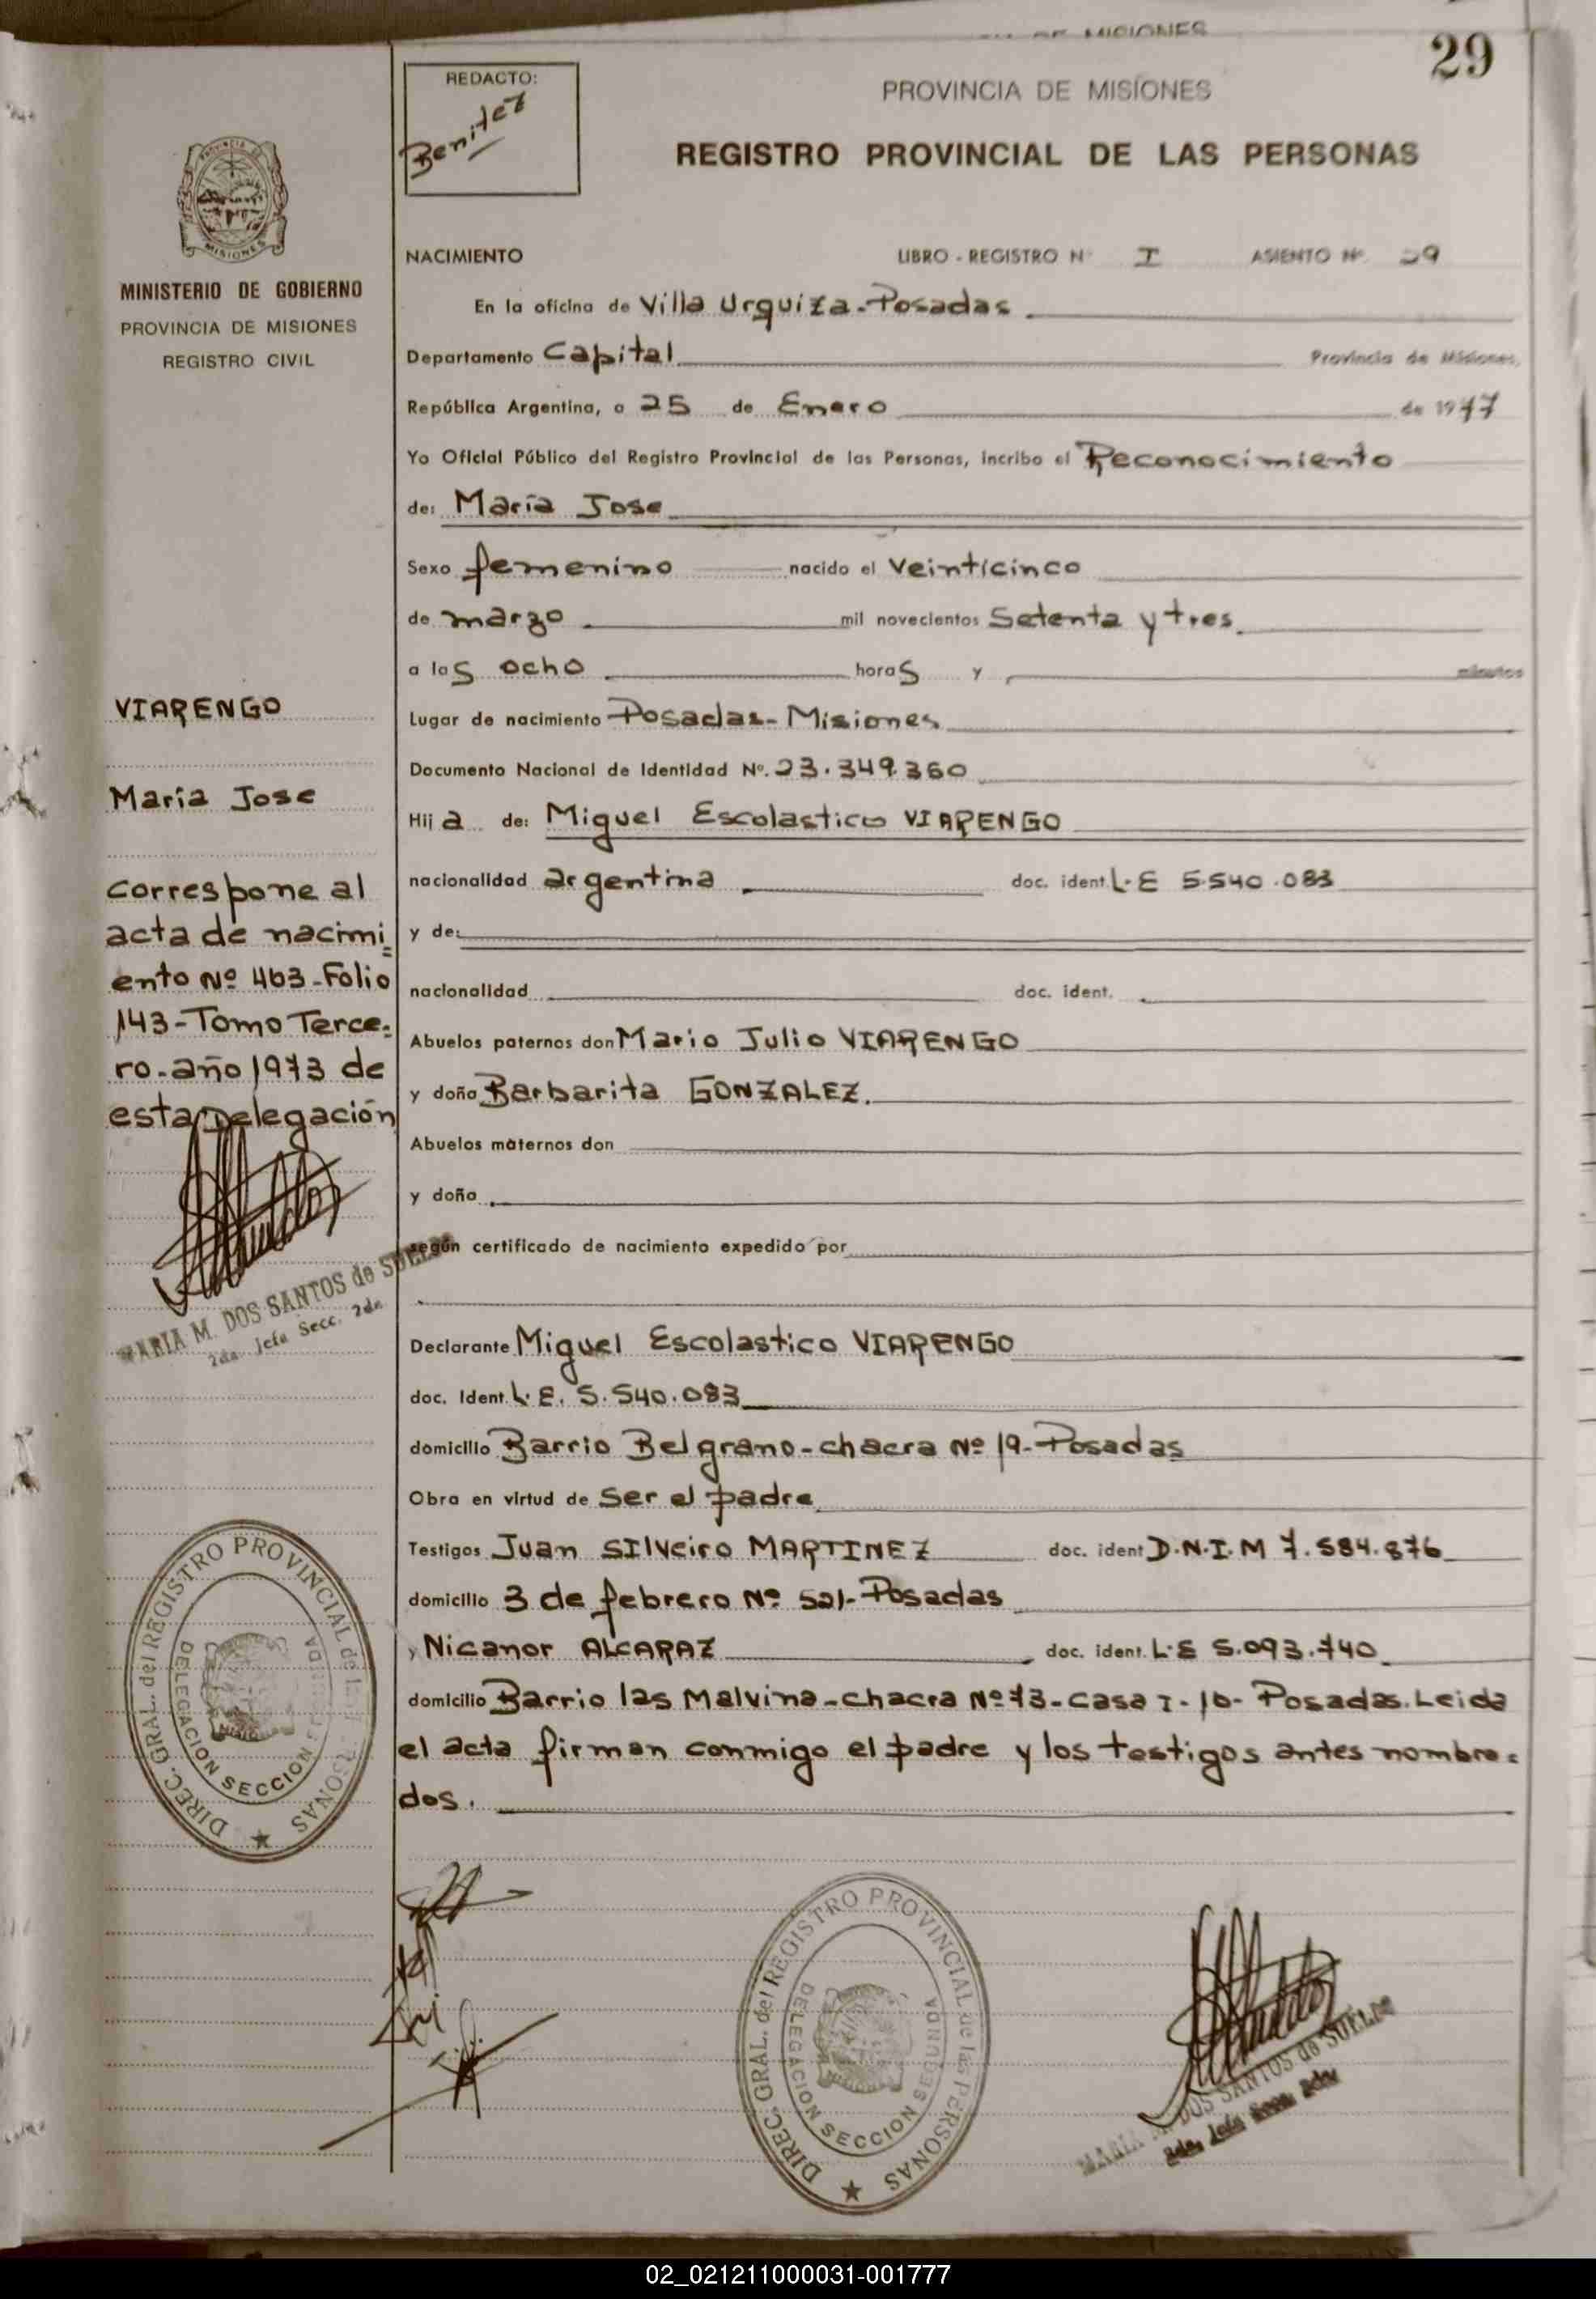 29
REDACTO:
Benitez
PROVINCIA DE MISIONES
REGISTRO PROVINCIAL DE LAS PERSONAS
MISIONES
MINISTERIO DE GOBIERNO
PROVINCIA DE MISIONES
REGISTRO CIVIL
NACIMIENTO LIBRO - REGISTRO Nº I ASIENTO Nº 29
En la oficina de Villa Urquiza-Posadas
Departamento Capital Provincia de Misiones,
República Argentina, a 25 de Enero de 1977
Yo Oficial Público del Registro Provincial de las Personas, incribo el Reconocimiento
de: María Jose
Sexo femenino nacido el Veinticinco
de marzo mil novecientos Setenta y tres
a las ocho horas y minutos
Lugar de nacimiento Posadas-Misiones
Documento Nacional de Identidad Nº. 23.349.360
Hija de: Miguel Escolastico VIARENGO
nacionalidad argentina doc. ident. L.E 5.540.083
y de:
nacionalidad doc. ident.
Abuelos paternos don Mario Julio VIARENGO
y doña Barbarita GONZALEZ.
Abuelos maternos don
y doña
según certificado de nacimiento expedido por
Declarante Miguel Escolastico VIARENGO
doc. Ident. L.E. 5.540.083
domicilio Barrio Belgrano-chacra Nº 19-Posadas
Obra en virtud de Ser el padre
Testigos Juan SILveiro MARTINEZ doc. ident D.N.I.M 7.584.876
domicilio 3 de febrero Nº 521-Posadas
y Nicanor ALCARAZ doc. ident. L.E 5.093.740
domicilio Barrio las Malvina-chacra Nº 73-casa I-10- Posadas. Leida
el acta firman conmigo el padre y los testigos antes nombra=
dos.
VIARENGO
María Jose
Correspone al
acta de nacimi=
ento Nº 463-Folio
143-Tomo Terce=
ro-año 1973 de
esta Delegación
MARIA M. DOS SANTOS de SUELDO
2da. Jefa Secc. 2da
DIREC. GRAL. del REGISTRO PROVINCIAL de las PERSONAS
DELEGACION SECCION SEGUNDA
DIREC. GRAL. del REGISTRO PROVINCIAL de las PERSONAS
DELEGACION SECCION SEGUNDA
MARIA M. DOS SANTOS de SUELDO
2da. Jefa Secc. 2da
02_021211000031-001777